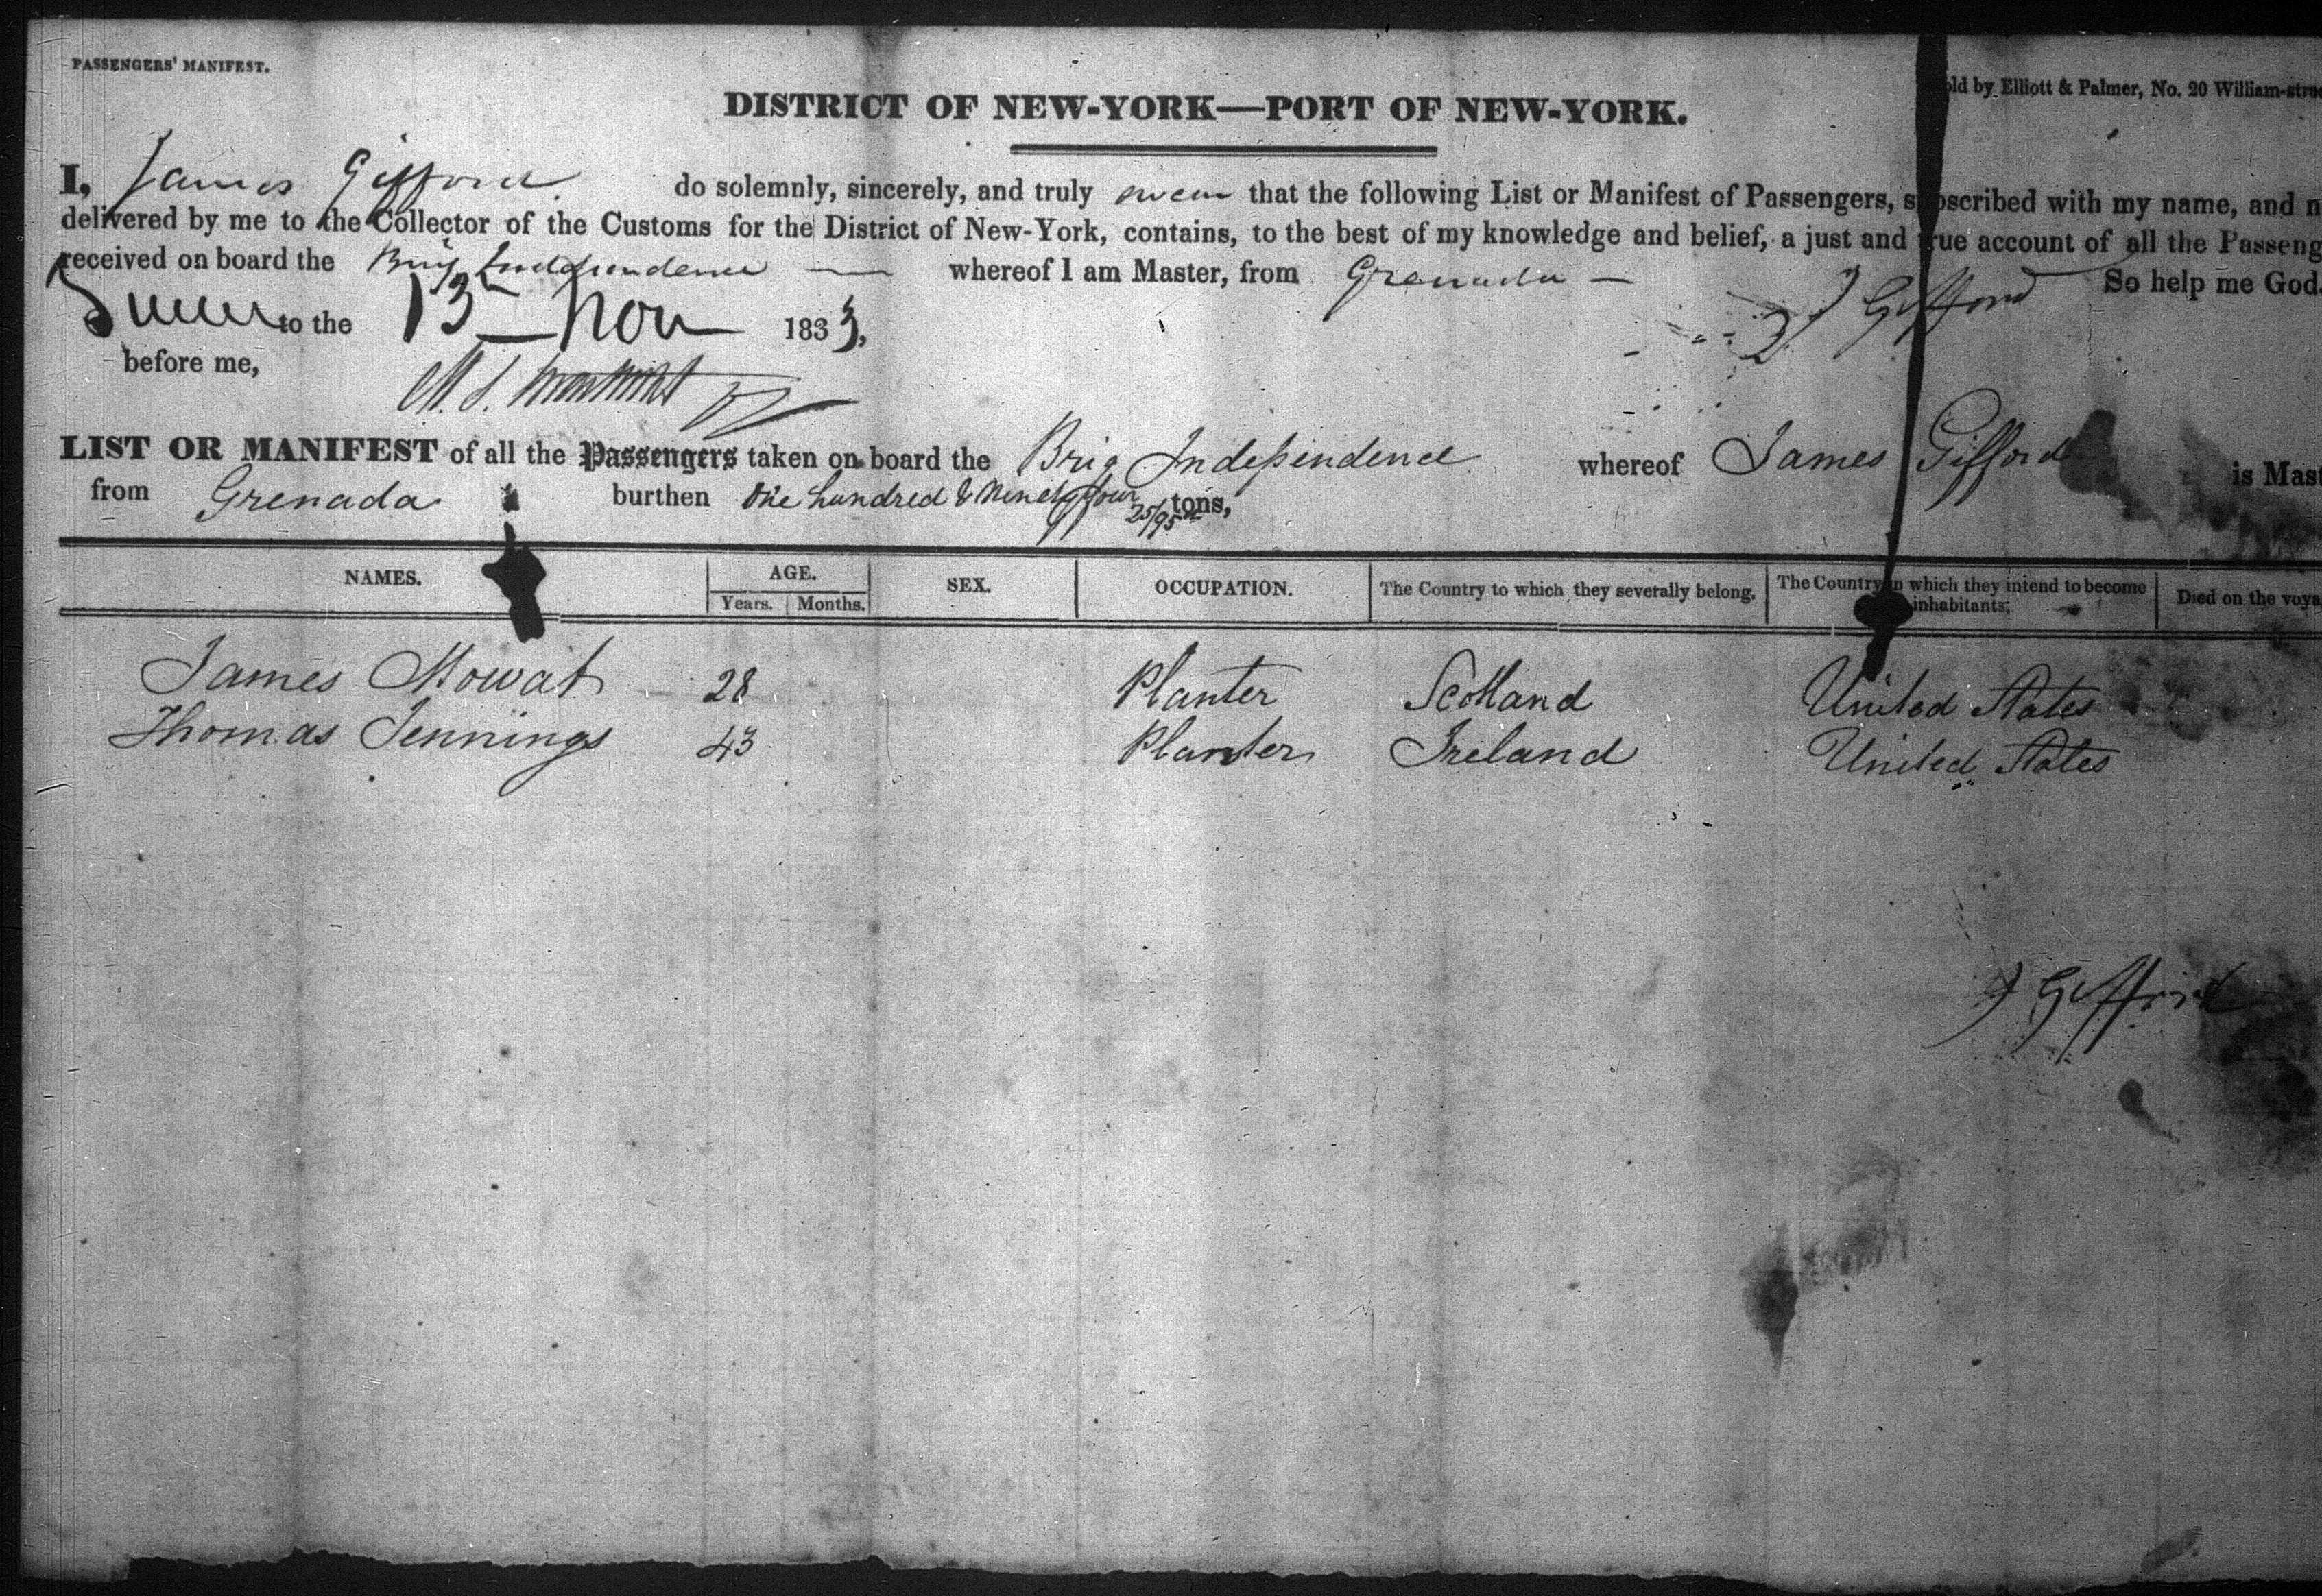 PASSENGERS' MANIFEST.
old by Elliott & Palmer, No. 20 William-stree
DISTRICT OF NEW-YORK—PORT OF NEW-YORK.
I, James Gifford do solemnly, sincerely, and truly swear that the following List or Manifest of Passengers, subscribed with my name, and n
delivered by me to the Collector of the Customs for the District of New-York, contains, to the best of my knowledge and belief, a just and true account of all the Passeng
received on board the Brig Independence — whereof I am Master, from Grenada —
So help me God.
J Gifford
to the 13 — Nov 1833,
before me,
LIST OR MANIFEST of all the Passengers taken on board the Brig Independence whereof James Gifford is Mast
from Grenada burthen One hundred & Ninety four 25/95 tons,
NAMES. AGE. SEX. OCCUPATION. The Country to which they severally belong. The Country in which they intend to become inhabitants; Died on the voya
Years. Months.
James Mowat 28 Planter Scotland United States
Thomas Jennings 43 Planter Ireland United States
J Gifford